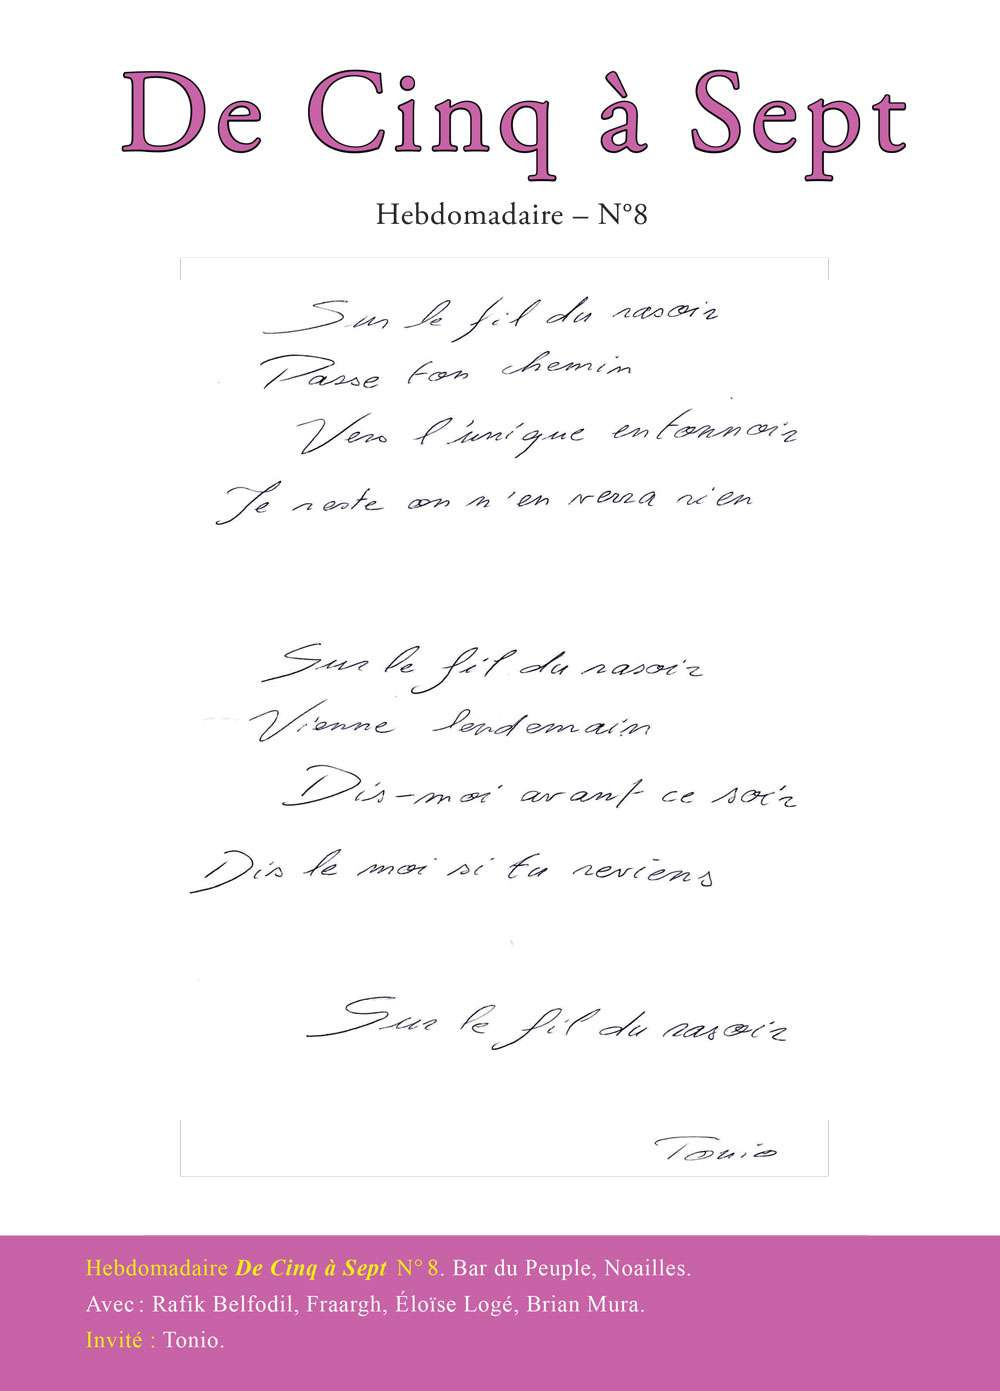 De Cinq à Sept
Hebdomadaire – N°8
Sur le fil du rasoir
Passe ton chemin
Vers l'unique entonnoir
Je reste on n'en verra rien
Sur le fil du rasoir
Vienne lendemain
Dis-moi avant ce soir
Dis le moi si tu reviens
Sur le fil du rasoir
Tonio
Hebdomadaire De Cinq à Sept N° 8. Bar du Peuple, Noailles.
Avec : Rafik Belfodil, Fraargh, Éloïse Logé, Brian Mura.
Invité : Tonio.